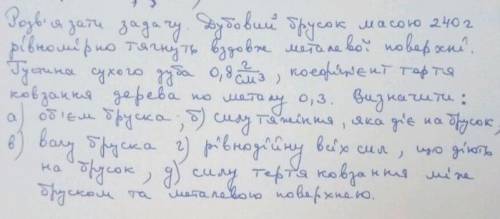 Розв'язати задачу. Дубовий брусок масою 240 г
рівномірно тягнуть вздовж металевої поверхні.
Густина сухого дуба 0,8 г/см3, коефіцієнт тертя
ковзання дерева по металу 0,3. Визначити:
а) об'єм бруска; б) силу тяжіння, яка діє на брусок,
в) вагу бруска г) рівнодійну всіх сил, що діють
на брусок, д) силу тертя ковзання між
бруском та металевою поверхнею.